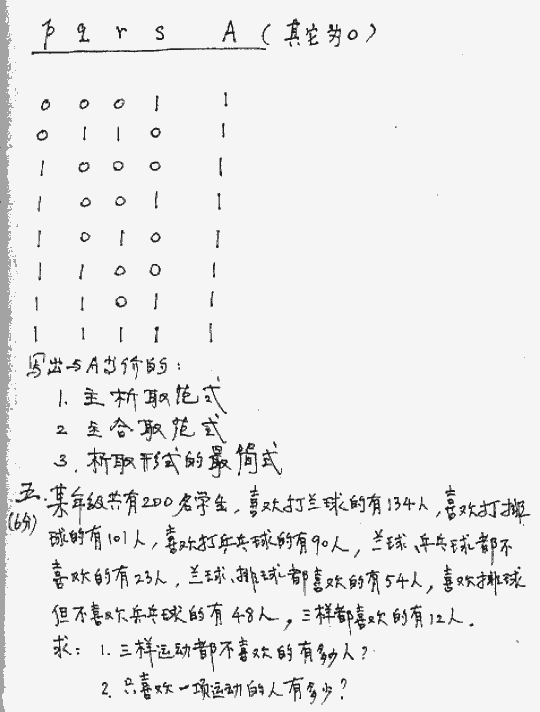 p q r s A (其它为0)
0 0 0 1 1
0 1 1 0 1
1 0 0 0 1
1 0 0 1 1
1 0 1 0 1
1 1 0 0 1
1 1 0 1 1
1 1 1 1 1
写出与A等价的:
1. 主析取范式
2 主合取范式
3. 析取形式的最简式
五. 某年级共有200名学生,喜欢打兰球的有134人,喜欢打排
(6分) 球的有101人,喜欢打乒乓球的有90人,兰球、乒乓球都不
喜欢的有23人,兰球、排球都喜欢的有54人,喜欢排球
但不喜欢乒乓球的有48人,三样都喜欢的有12人.
求: 1. 三样运动都不喜欢的有多少人?
2. 只喜欢一项运动的人有多少?